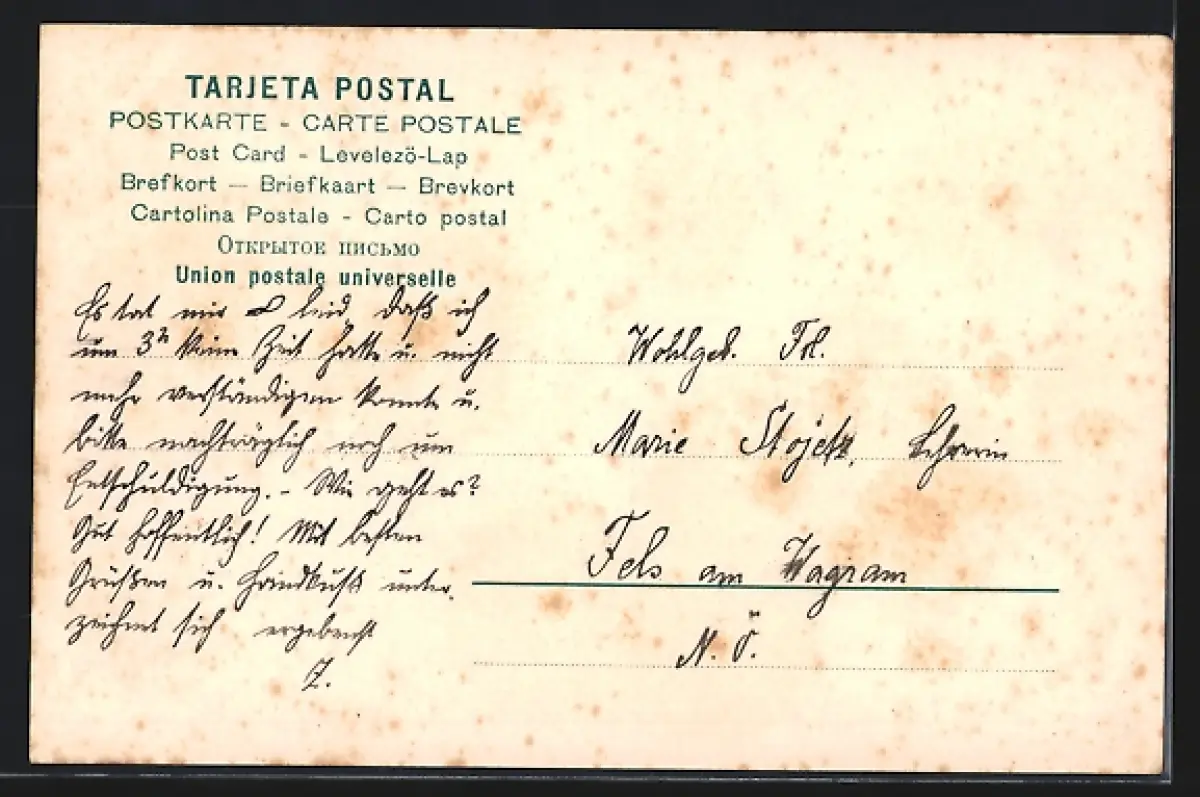 TARJETA POSTAL
POSTKARTE - CARTE POSTALE
Post Card - Levelezö-Lap
Brefkort — Briefkaart — Brevkort
Cartolina Postale - Carto postal
Открытое письмо
Union postale universelle
Es tat mir leid, daß ich
um 3h keine Zeit hatte u. nicht
mehr verständigen konnte u.
bitte nachträglich noch um
Entschuldigung. - Wie geht es?
Gut hoffentlich! Mit besten
Grüßen u. Handkuß unter-
zeichnet sich ergebenst
Z.
Wohlgeb. Frl.
Marie Stojetz, Lehrerin
Fels am Wagram
N. Ö.